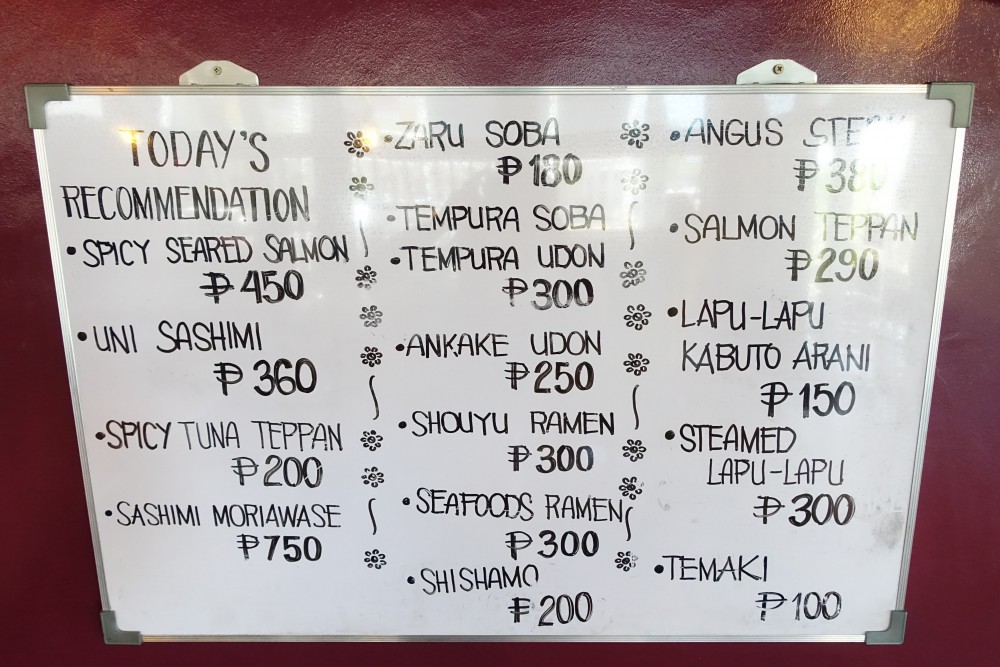 TODAY'S
RECOMMENDATION
• SPICY SEARED SALMON
₱450
• UNI SASHIMI
₱360
• SPICY TUNA TEPPAN
₱200
• SASHIMI MORIAWASE
₱750
• ZARU SOBA
₱180
• TEMPURA SOBA
• TEMPURA UDON
₱300
• ANKAKE UDON
₱250
• SHOUYU RAMEN
₱300
• SEAFOODS RAMEN
₱300
• SHISHAMO
₱200
• ANGUS
₱380
• SALMON TEPPAN
₱290
• LAPU-LAPU
KABUTO ARANI
₱150
• STEAMED
LAPU-LAPU
₱300
• TEMAKI
₱100